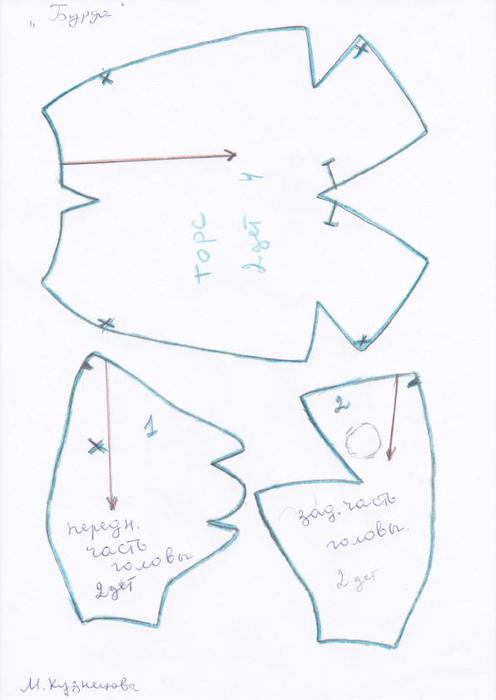 "Бурда"
торс
2 дет
4
1
передн.
часть
головы
2 дет
2
зад. часть
головы.
2 дет
М. Кузнецова